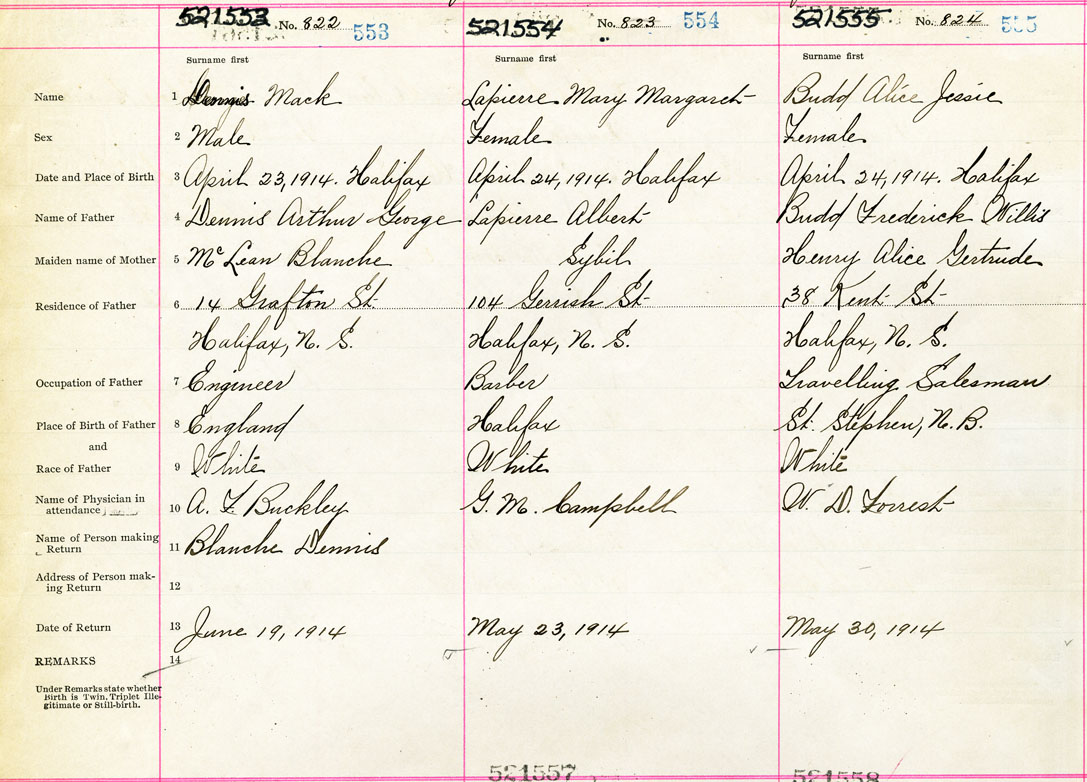 521553 No. 822 553 521554 No. 823 554 521555 No. 824 555
Surname first Surname first Surname first
Name 1 Dennis Mack Lapierre Mary Margaret Budd Alice Jessie
Sex 2 Male Female Female
Date and Place of Birth 3 April 23, 1914. Halifax April 24, 1914. Halifax April 24, 1914. Halifax
Name of Father 4 Dennis Arthur George Lapierre Albert Budd Frederick Willis
Maiden name of Mother 5 Mc Lean Blanche Sybil Henry Alice Gertrude
Residence of Father 6 14 Grafton St 104 Gerrish St 38 Kent St
Halifax, N. S. Halifax, N. S. Halifax, N. S.
Occupation of Father 7 Engineer Barber Travelling Salesman
Place of Birth of Father 8 England Halifax St. Stephen, N. B.
and
Race of Father 9 White White White
Name of Physician in
attendance 10 A. F. Buckley G. M. Campbell W. D. Forrest
Name of Person making
Return 11 Blanche Dennis
Address of Person mak-
ing Return 12
Date of Return 13 June 19, 1914 May 23, 1914 May 30, 1914
REMARKS 14
Under Remarks state whether
Birth is Twin, Triplet Ille-
gitimate or Still-birth.
521557 521558